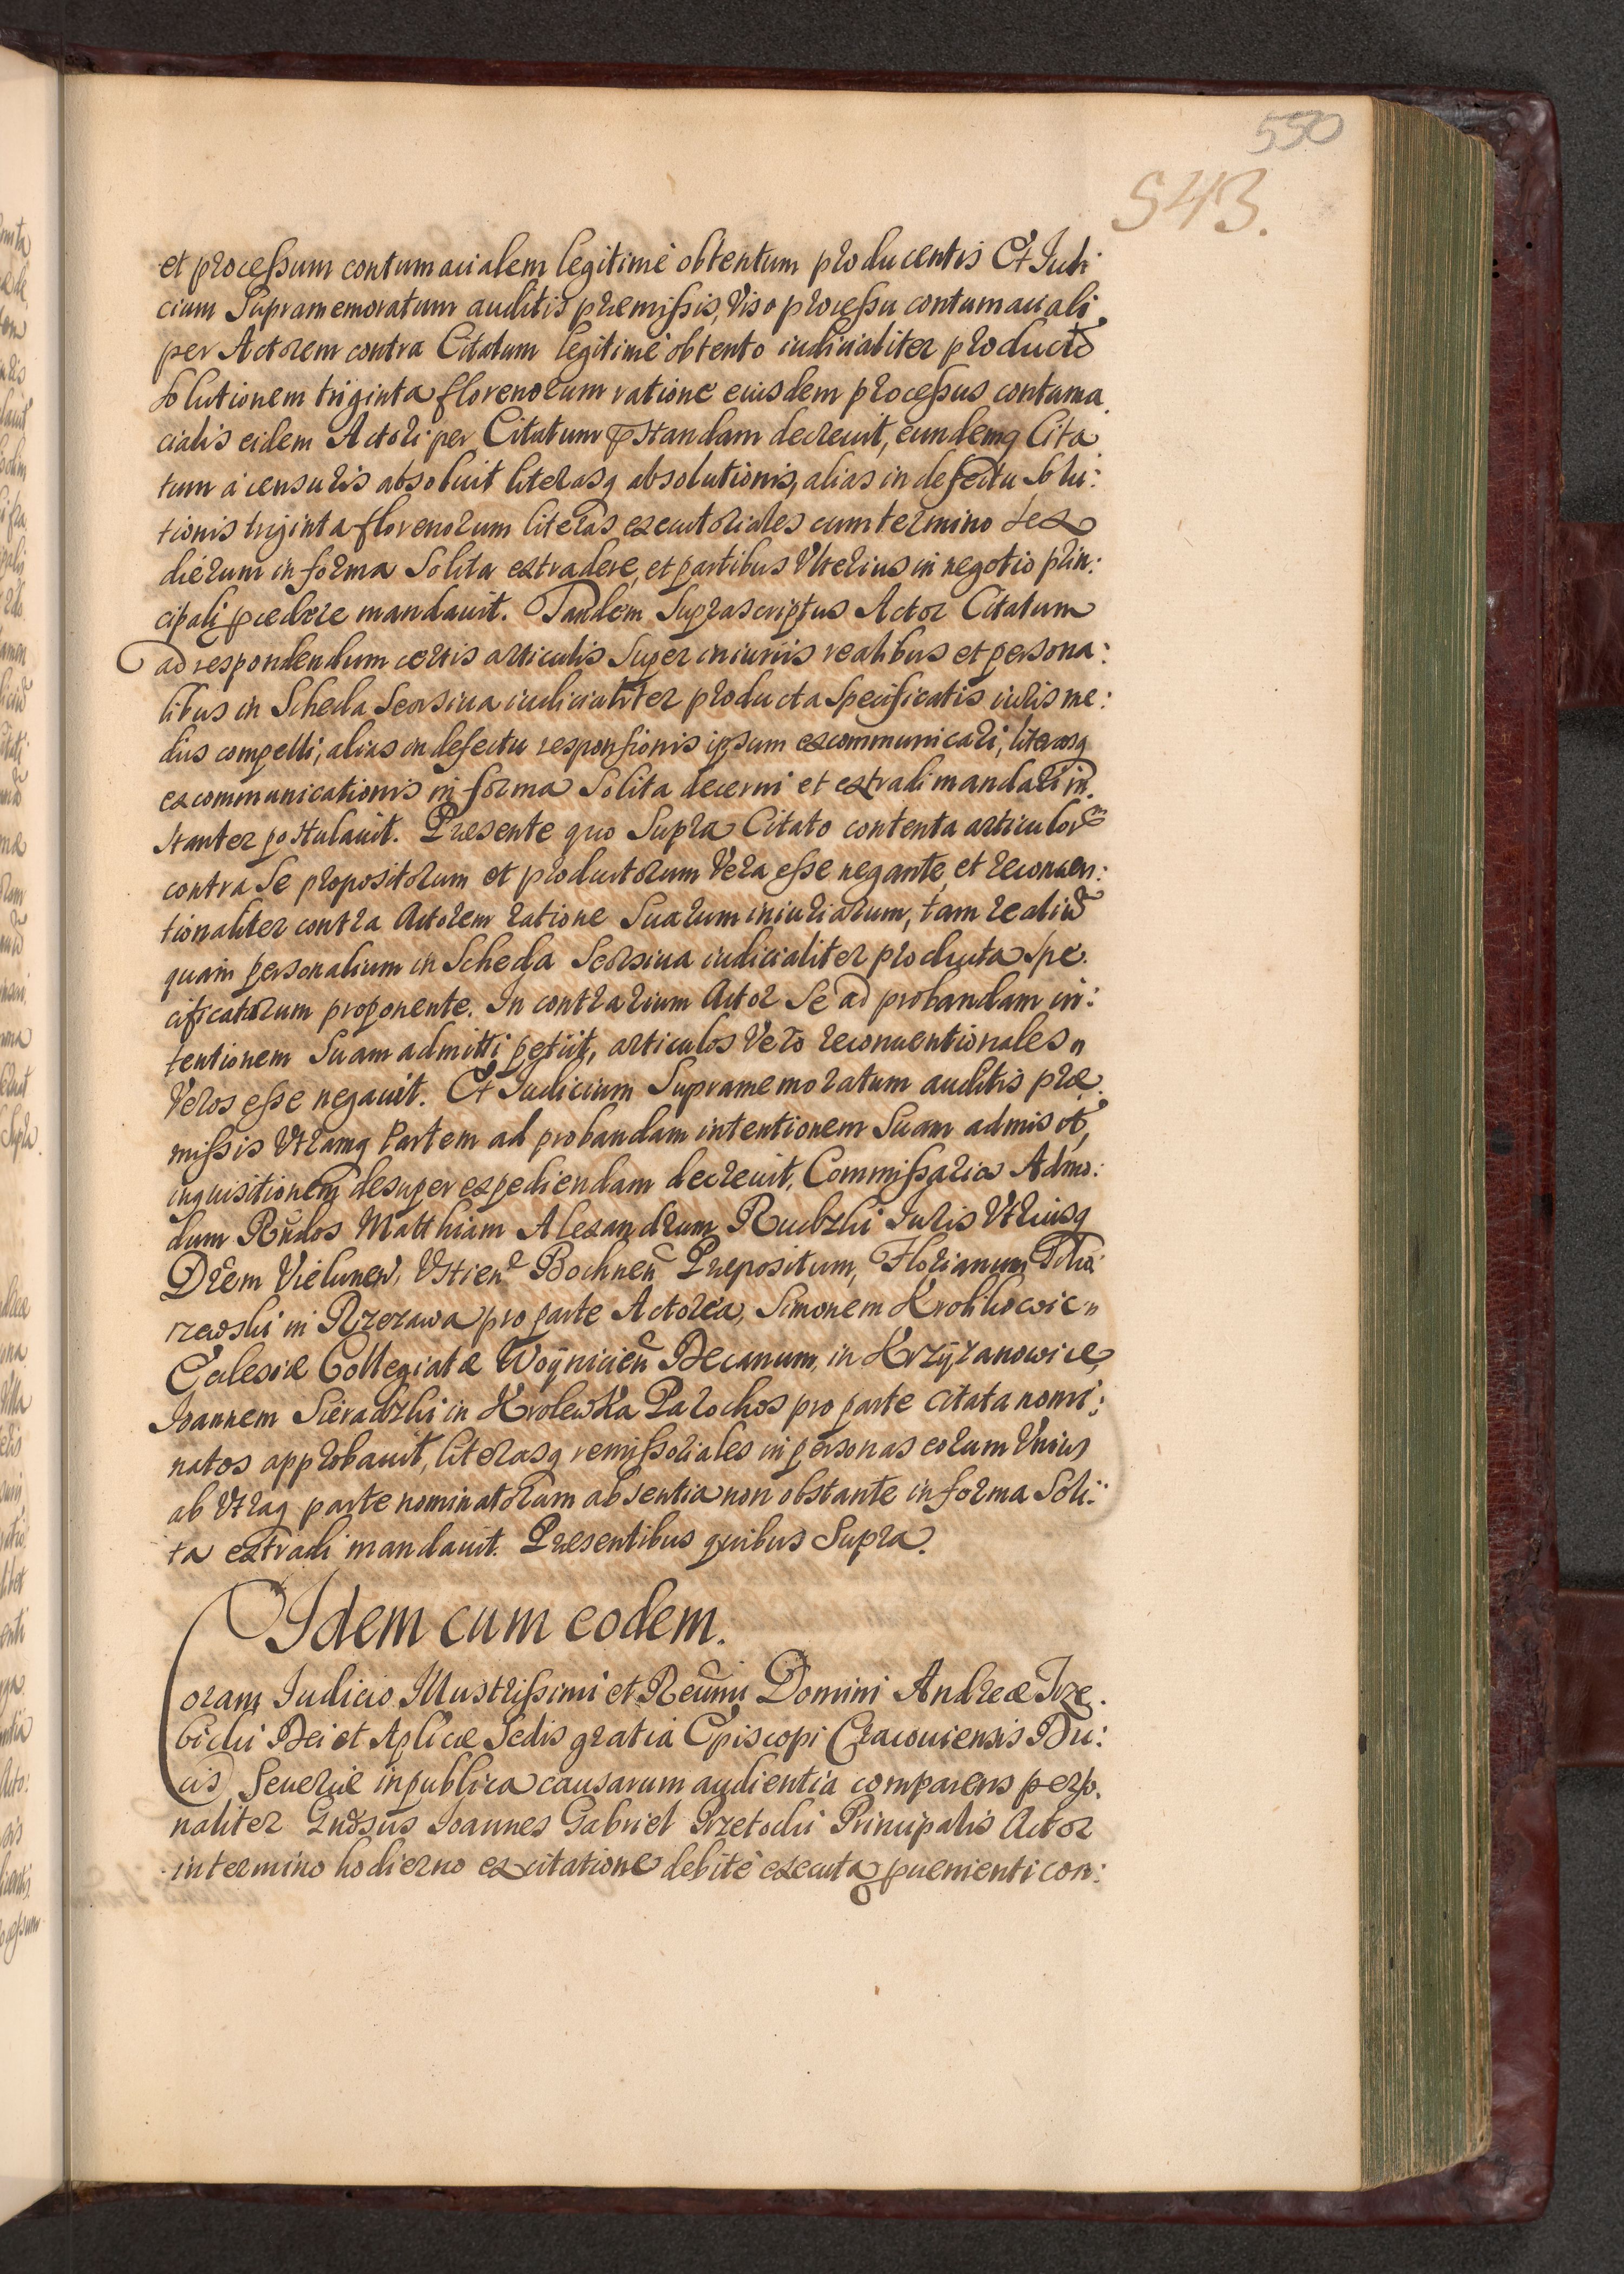 550
543.
et processum contumacialem legitimè obtentum producentis Et Iudi:
cium Supramemoratum auditis præmissis, Viso processu contumaciali
per Actorem contra Citatum legitimè obtento iudicialiter producto
solutionem triginta florenorum ratione eiusdem processus contuma
cialis eidem Actori per Citatum pstandam decreuit, eundemq Cita
tum à censuris absoluit literasq absolutionis, alias in defectu solu:
tionis triginta florenorum literas executoriales cum termino sex
dierum in forma Solita extradere, et partibus Vlterius in negotio prin:
cipali pcedere mandauit. Tandem Suprascriptus Actor Citatum
ad respondendum certis articulis Super iniuriis realibus et persona:
libus in Scheda Seorsiua iudicialiter producta Specificatis iuris me:
diis compelli, alias in defectu responsionis ipsum excommunicari, literasq
excommunicationis in forma Solita decerni et extradi mandari in
stanter postulauit. Præsente quo Supra Citato contenta articulor
contra Se propositorum et productorum Vera esse negante, et reconuen:
tionaliter contra Actorem ratione Suarum iniuriarum, tam realiu
quam personalium in Scheda Seorsiua iudicialiter producta spe
cificatarum proponente. In contrarium Actor Se ad probandam in:
tentionem Suam admitti petiit, articulos Vero reconuentionales
Veros esse negauit. Et Iudicium Supramemoratum auditis præ
missis Vtramq Partem ad probandam intentionem Suam admisit,
inquisitionem desuper expediendam decreuit, Commissarios Admo:
dum Rndos Matthiam Alexandrum Rudzki Iuris Vtriusq
Drem Vielunen, Vstien Bochnen Præpositum, Florianum
rzewski in Rzezawa pro parte Actorea, Simonem Krolikowic
Eclesiæ Collegiatæ Woynicien Decanum, in Krzyżanowice,
Ioannem Sieradzki in Krolewka Parochos pro parte citata nomi:
natos approbauit, literasq remissoriales in personas eorum Vnius
ab Vtraq parte nominatorum absentia non obstante in forma Soli:
ta extradi mandauit. Præsentibus quibus Supra.
Idem cum eodem.
Coram Iudicio Illustrissimi et Reumi Domini Andreæ Trze
bicki Dei et Aplicæ Sedis gratia Episcopi Cracouiensis Du:
cis Seueriæ in publica causarum audientia comparens perso
naliter Gndsus Ioannes Gabriel Przetocki Principalis Actor
in termino hodierno ex citatione debitè executa puenienti con: